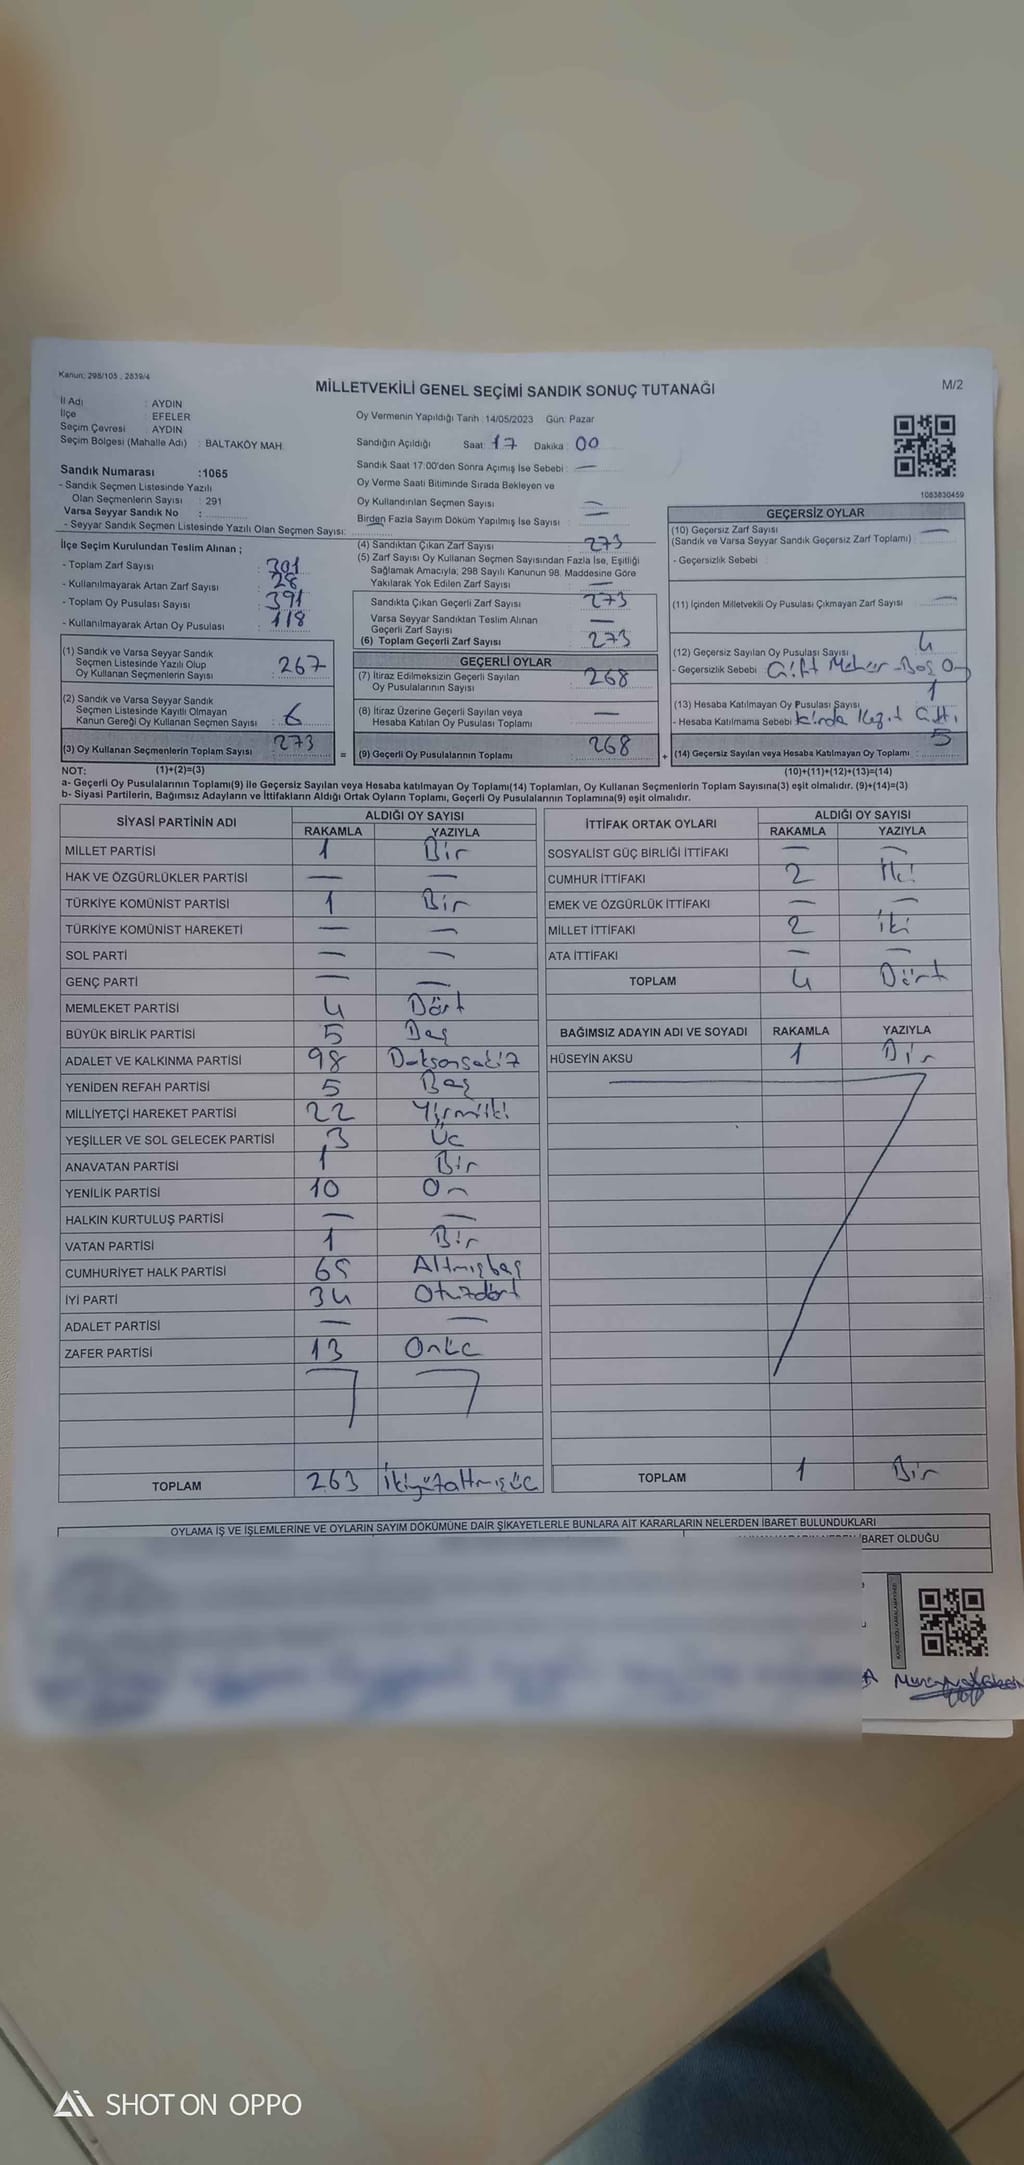 Kanun: 298/105 , 2839/4
MİLLETVEKİLİ GENEL SEÇİMİ SANDIK SONUÇ TUTANAĞI
M/2
İl Adı : AYDIN
İlçe : EFELER
Seçim Çevresi : AYDIN
Seçim Bölgesi (Mahalle Adı) : BALTAKÖY MAH.
Sandık Numarası :1065
- Sandık Seçmen Listesinde Yazılı
Olan Seçmenlerin Sayısı : 291
Varsa Seyyar Sandık No :
- Seyyar Sandık Seçmen Listesinde Yazılı Olan Seçmen Sayısı:
Oy Vermenin Yapıldığı Tarih : 14/05/2023 Gün: Pazar
Sandığın Açıldığı Saat: 17 Dakika : 00
Sandık Saat 17:00'den Sonra Açımış İse Sebebi : —
Oy Verme Saati Bitiminde Sırada Bekleyen ve
Oy Kullandırılan Seçmen Sayısı : —
Birden Fazla Sayım Döküm Yapılmış İse Sayısı : —
1083830459
İlçe Seçim Kurulundan Teslim Alınan ;
- Toplam Zarf Sayısı : 301
- Kullanılmayarak Artan Zarf Sayısı : 28
- Toplam Oy Pusulası Sayısı : 391
- Kullanılmayarak Artan Oy Pusulası : 118
(1) Sandık ve Varsa Seyyar Sandık
Seçmen Listesinde Yazılı Olup
Oy Kullanan Seçmenlerin Sayısı : 267
(2) Sandık ve Varsa Seyyar Sandık
Seçmen Listesinde Kayıtlı Olmayan
Kanun Gereği Oy Kullanan Seçmen Sayısı : 6
(3) Oy Kullanan Seçmenlerin Toplam Sayısı : 273
(4) Sandıktan Çıkan Zarf Sayısı : 273
(5) Zarf Sayısı Oy Kullanan Seçmen Sayısından Fazla İse, Eşitliği
Sağlamak Amacıyla; 298 Sayılı Kanunun 98. Maddesine Göre
Yakılarak Yok Edilen Zarf Sayısı : —
Sandıkta Çıkan Geçerli Zarf Sayısı : 273
Varsa Seyyar Sandıktan Teslim Alınan
Geçerli Zarf Sayısı : —
(6) Toplam Geçerli Zarf Sayısı : 273
GEÇERLİ OYLAR
(7) İtiraz Edilmeksizin Geçerli Sayılan
Oy Pusulalarının Sayısı : 268
(8) İtiraz Üzerine Geçerli Sayılan veya
Hesaba Katılan Oy Pusulası Toplamı : —
= (9) Geçerli Oy Pusulalarının Toplamı : 268
GEÇERSİZ OYLAR
(10) Geçersiz Zarf Sayısı : —
(Sandık ve Varsa Seyyar Sandık Geçersiz Zarf Toplamı)
- Geçersizlik Sebebi :
(11) İçinden Milletvekili Oy Pusulası Çıkmayan Zarf Sayısı : —
(12) Geçersiz Sayılan Oy Pusulası Sayısı : 4
- Geçersizlik Sebebi : Çift Mühür-Boş Oy
(13) Hesaba Katılmayan Oy Pusulası Sayısı : 1
- Hesaba Katılmama Sebebi :
+ (14) Geçersiz Sayılan veya Hesaba Katılmayan Oy Toplamı : 5
NOT: (1)+(2)=(3) (10)+(11)+(12)+(13)=(14)
a- Geçerli Oy Pusulalarının Toplamı(9) ile Geçersiz Sayılan veya Hesaba katılmayan Oy Toplamı(14) Toplamları, Oy Kullanan Seçmenlerin Toplam Sayısına(3) eşit olmalıdır. (9)+(14)=(3)
b- Siyasi Partilerin, Bağımsız Adayların ve İttifakların Aldığı Ortak Oyların Toplamı, Geçerli Oy Pusulalarının Toplamına(9) eşit olmalıdır.
SİYASİ PARTİNİN ADI ALDIĞI OY SAYISI
RAKAMLA YAZIYLA
MİLLET PARTİSİ 1 Bir
HAK VE ÖZGÜRLÜKLER PARTİSİ — —
TÜRKİYE KOMÜNİST PARTİSİ 1 Bir
TÜRKİYE KOMÜNİST HAREKETİ — —
SOL PARTİ — —
GENÇ PARTİ — —
MEMLEKET PARTİSİ 4 Dört
BÜYÜK BİRLİK PARTİSİ 5 Beş
ADALET VE KALKINMA PARTİSİ 98 Doksansekiz
YENİDEN REFAH PARTİSİ 5 Beş
MİLLİYETÇİ HAREKET PARTİSİ 22 Yirmiiki
YEŞİLLER VE SOL GELECEK PARTİSİ 3 Üç
ANAVATAN PARTİSİ 1 Bir
YENİLİK PARTİSİ 10 On
HALKIN KURTULUŞ PARTİSİ — —
VATAN PARTİSİ 1 Bir
CUMHURİYET HALK PARTİSİ 65 Altmışbeş
İYİ PARTİ 34 Otuzdört
ADALET PARTİSİ — —
ZAFER PARTİSİ 13 Onüç
TOPLAM 263 İkiyüzaltmışüç
İTTİFAK ORTAK OYLARI ALDIĞI OY SAYISI
RAKAMLA YAZIYLA
SOSYALİST GÜÇ BİRLİĞİ İTTİFAKI — —
CUMHUR İTTİFAKI 2 İki
EMEK VE ÖZGÜRLÜK İTTİFAKI — —
MİLLET İTTİFAKI 2 İki
ATA İTTİFAKI — —
TOPLAM 4 Dört
BAĞIMSIZ ADAYIN ADI VE SOYADI RAKAMLA YAZIYLA
HÜSEYİN AKSU 1 Bir
TOPLAM 1 Bir
OYLAMA İŞ VE İŞLEMLERİNE VE OYLARIN SAYIM DÖKÜMÜNE DAİR ŞİKAYETLERLE BUNLARA AİT KARARLARIN NELERDEN İBARET BULUNDUKLARI
İBARET OLDUĞU
SHOT ON OPPO